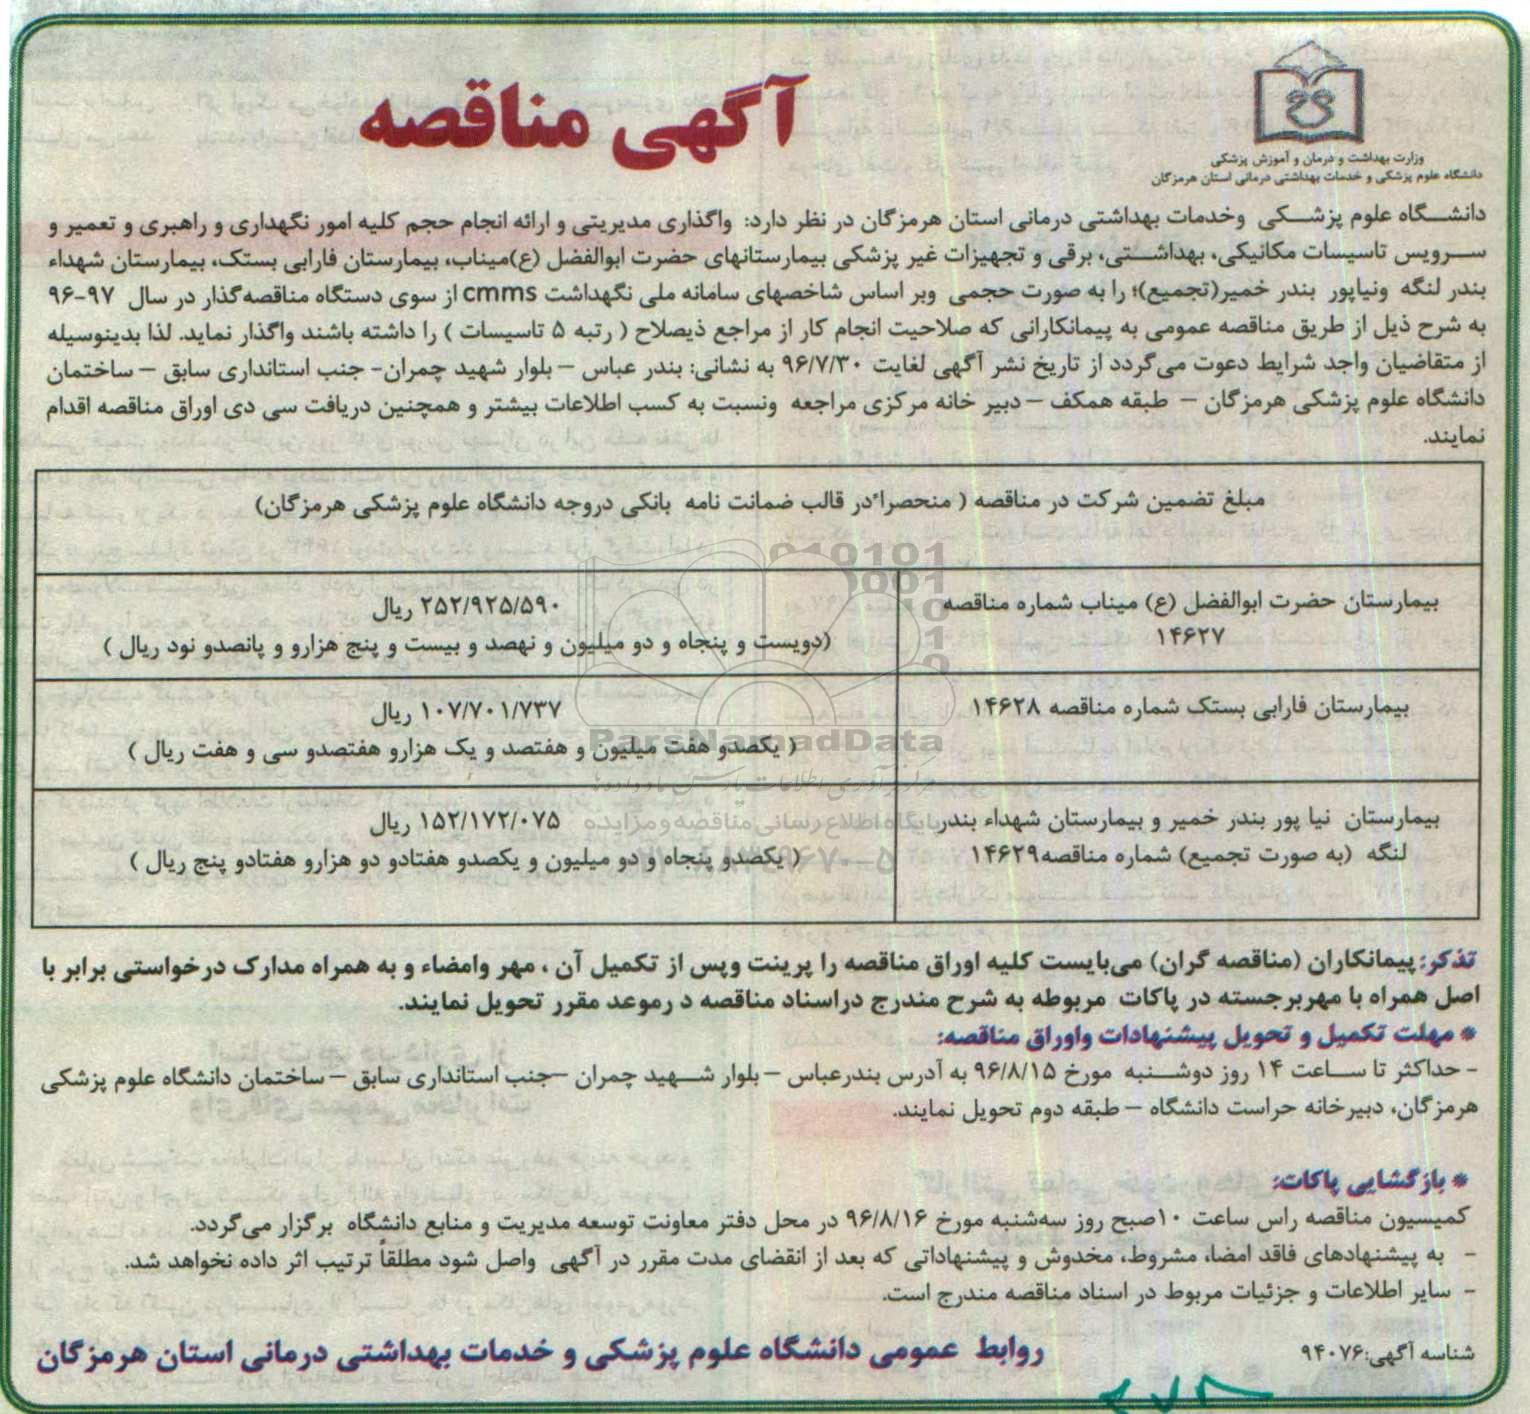 آگهی مناقصه
وزارت بهداشت و درمان و آموزش پزشکی
دانشگاه علوم پزشکی و خدمات بهداشتی درمانی استان هرمزگان
دانشگاه علوم پزشکی وخدمات بهداشتی درمانی استان هرمزگان در نظر دارد: واگذاری مدیریتی و ارائه انجام حجم کلیه امور نگهداری و راهبری و تعمیر و
سرویس تاسیسات مکانیکی، بهداشتی، برقی و تجهیزات غیر پزشکی بیمارستانهای حضرت ابوالفضل (ع)میناب، بیمارستان فارابی بستک، بیمارستان شهداء
بندر لنگه ونیاپور بندر خمیر(تجمیع)؛ را به صورت حجمی وبر اساس شاخصهای سامانه ملی نگهداشت cmms از سوی دستگاه مناقصه‌گذار در سال ۹۷-۹۶
به شرح ذیل از طریق مناقصه عمومی به پیمانکارانی که صلاحیت انجام کار از مراجع ذیصلاح ( رتبه ۵ تاسیسات ) را داشته باشند واگذار نماید. لذا بدینوسیله
از متقاضیان واجد شرایط دعوت می‌گردد از تاریخ نشر آگهی لغایت ۹۶/۷/۳۰ به نشانی: بندر عباس – بلوار شهید چمران- جنب استانداری سابق – ساختمان
دانشگاه علوم پزشکی هرمزگان – طبقه همکف – دبیر خانه مرکزی مراجعه ونسبت به کسب اطلاعات بیشتر و همچنین دریافت سی دی اوراق مناقصه اقدام
نمایند.
مبلغ تضمین شرکت در مناقصه ( منحصراً در قالب ضمانت نامه بانکی دروجه دانشگاه علوم پزشکی هرمزگان)
بیمارستان حضرت ابوالفضل (ع) میناب شماره مناقصه
۱۴۶۲۷
۲۵۲/۹۲۵/۵۹۰ ریال
(دویست و پنجاه و دو میلیون و نهصد و بیست و پنج هزارو و پانصدو نود ریال )
بیمارستان فارابی بستک شماره مناقصه ۱۴۶۲۸
۱۰۷/۷۰۱/۷۳۷ ریال
( یکصدو هفت میلیون و هفتصد و یک هزارو هفتصدو سی و هفت ریال )
بیمارستان نیا پور بندر خمیر و بیمارستان شهداء بندر
لنگه (به صورت تجمیع) شماره مناقصه۱۴۶۲۹
۱۵۲/۱۷۲/۰۷۵ ریال
( یکصدو پنجاه و دو میلیون و یکصدو هفتادو دو هزارو هفتادو پنج ریال )
ParsNamadData
پایگاه اطلاع رسانی مناقصه و مزایده
تذکر: پیمانکاران (مناقصه گران) می‌بایست کلیه اوراق مناقصه را پرینت وپس از تکمیل آن ، مهر وامضاء و به همراه مدارک درخواستی برابر با
اصل همراه با مهربرجسته در پاکات مربوطه به شرح مندرج دراسناد مناقصه د رموعد مقرر تحویل نمایند.
* مهلت تکمیل و تحویل پیشنهادات واوراق مناقصه:
- حداکثر تا ساعت ۱۴ روز دوشنبه مورخ ۹۶/۸/۱۵ به آدرس بندرعباس – بلوار شهید چمران –جنب استانداری سابق – ساختمان دانشگاه علوم پزشکی
هرمزگان، دبیرخانه حراست دانشگاه – طبقه دوم تحویل نمایند.
* بازگشایی پاکات:
کمیسیون مناقصه راس ساعت ۱۰صبح روز سه‌شنبه مورخ ۹۶/۸/۱۶ در محل دفتر معاونت توسعه مدیریت و منابع دانشگاه برگزار می‌گردد.
- به پیشنهادهای فاقد امضا، مشروط، مخدوش و پیشنهاداتی که بعد از انقضای مدت مقرر در آگهی واصل شود مطلقاً ترتیب اثر داده نخواهد شد.
- سایر اطلاعات و جزئیات مربوط در اسناد مناقصه مندرج است.
شناسه آگهی:۹۴۰۷۶
روابط عمومی دانشگاه علوم پزشکی و خدمات بهداشتی درمانی استان هرمزگان